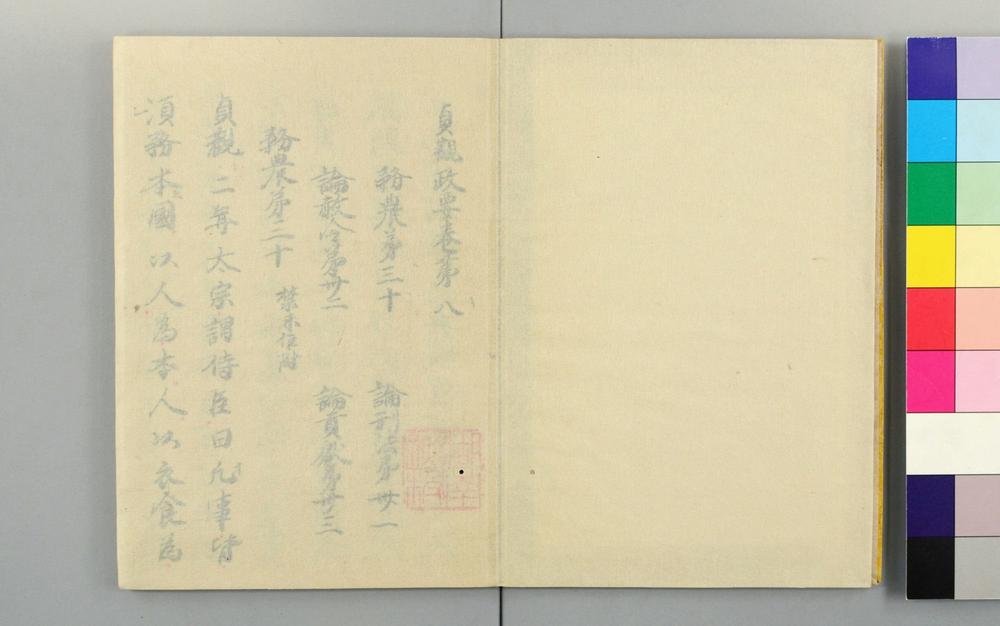 貞觀政要卷第八
務農第三十　論刑法第卅一
論赦令第卅二　論貢獻第卅三
務農第三十
貞觀二年太宗謂侍臣曰凡事皆
須務本國以人為本人以衣食為